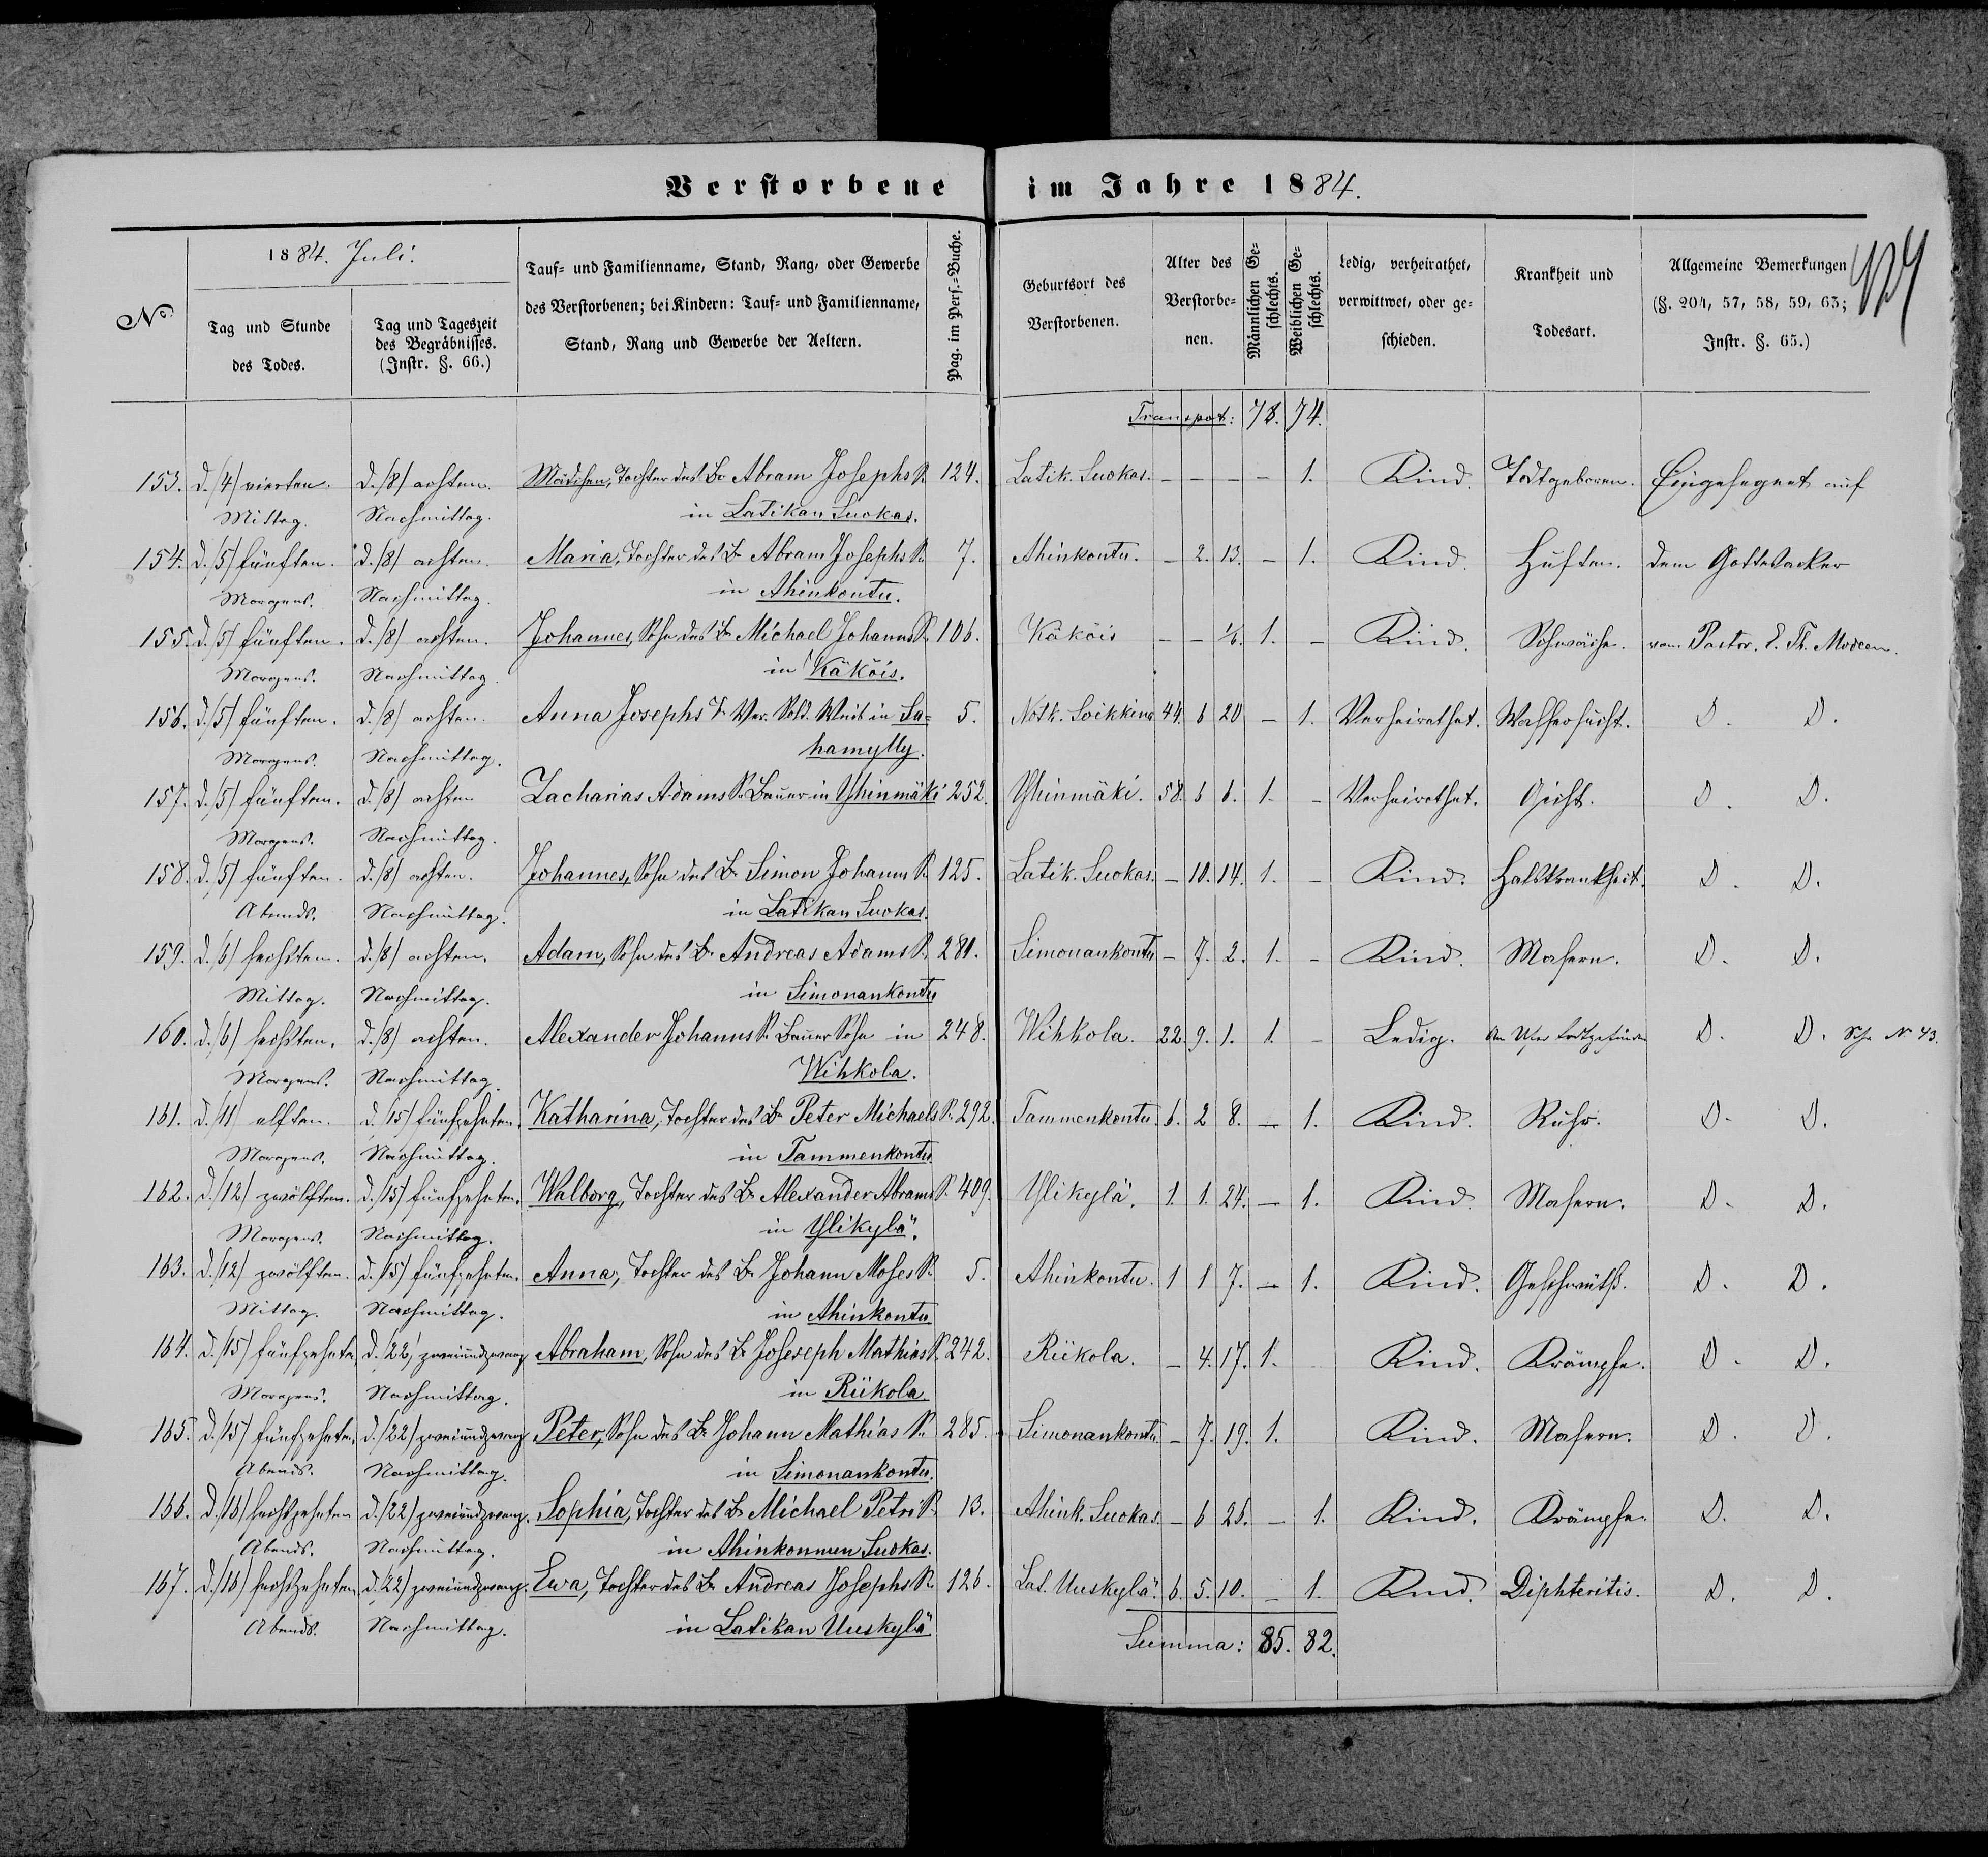 Verstorbene im Jahre 1884.
1884. Juli.
No
Tag und Stunde des Todes.
Tag und Tageszeit des Begräbnisses. (Instr. §. 66.)
Tauf= und Familienname, Stand, Rang, oder Gewerbe
des Verstorbenen; bei Kindern: Tauf= und Familienname,
Stand, Rang und Gewerbe der Aeltern.
Pag. im Pers.=Buche.
Geburtsort des Verstorbenen.
Alter des Verstorbenen.
Männlichen Geschlechts.
Weiblichen Geschlechts.
Ledig, verheirathet, verwittwet, oder geschieden.
Krankheit und Todesart.
Allgemeine Bemerkungen (§. 204, 57, 58, 59, 65; Instr. §. 65.)
Transport: 78. 74.
153. d. (4) vierten. d. (8) achten. Mädchen, Tochter des Br Abram Josephs S. 124. Latik. Suokas. – – – – 1. Kind. Todtgeboren. Eingesegnet auf
Mittag. Nachmittag. in Latikan Suokas.
154. d. (5) fünften. d. (8) achten. Maria, Tochter des Br Abram Josephs S. 7. Ahinkontu. – 2. 13. – 1. Kind. Husten. dem Gottesacker
Morgens. Nachmittag. in Ahinkontu.
155. d. (5) fünften. d. (8) achten. Johannes, Sohn des Br Michael Johanns S. 106. Käköis – – 1. – Kind. Schwäche. vom Pastor. E. Th. Modeen.
Morgens. Nachmittag. in Käköis.
156. d. (5) fünften. d. (8) achten. Anna Josephs T. Ver. Sold. Weib in Sa= 5. Notk. Soikkins 44. 6 20 – 1. Verheirathet. Wassersucht. D. D.
Morgens. Nachmittag. hamylly.
157. d. (5) fünften. d. (8) achten Zacharias Adams S. Bauer in Yhinmäki 252. Yhinmäki. 58. 6 6. 1. – Verheirathet. Gicht. D. D.
Morgens. Nachmittag.
158. d. (5) fünften. d. (8) achten. Johannes, Sohn des Br Simon Johanns S. 125. Latik. Suokas. – 10. 14. 1. – Kind. Halskrankheit. D. D.
Abends. Nachmittag. in Latikan Suokas.
159. d. (6) sechsten. d. (8) achten. Adam, Sohn des Br Andreas Adams S. 281. Simonankontu – 7. 2. 1. – Kind. Masern. D. D.
Mittag. Nachmittag. in Simonankontu
160. d. (6) sechsten. d. (8) achten. Alexander Johanns S. Bauer Sohn in 248. Wihkola. 22. 9. 1. 1. – Ledig. Am Ufer todtgefunden D. D. Sch. No 43.
Morgens. Nachmittag. Wihkola.
161. d. (11) elften. d. (15) fünfzehnten. Katharina, Tochter des Br Peter Michaels S. 292. Tammenkontu. 6. 2 8. – 1. Kind. Ruhr. D. D.
Morgens. Nachmittag. in Tammenkontu.
162. d. (12) zwölften. d. (15) fünfzehnten. Walborg, Tochter des Br Alexander Abrams S. 409. Ylikylä. 1. 1. 24. – 1. Kind. Masern. D. D.
Morgens. Nachmittag. in Ylikylä.
163. d. (12) zwölften. d. (15) fünfzehnten. Anna, Tochter des Br Johann Moses S. 5. Ahinkontu. 1 1 7. – 1. Kind. D. D.
Mittag. Nachmittag. in Ahinkontu
164. d. (15) fünfzehnten d. (22) zweiundzwanz Abraham, Sohn des Br Joseseph Mathias S. 242. Riikola. – 4. 17. 1. Kind. Krämpfe. D. D.
Morgens. Nachmittag. in Riikola
165. d. (15) fünfzehnten d. (22) zweiundzwanz Peter, Sohn des Br Johann Mathias S. 285. Simonankontu – 7. 19. 1. Kind. Masern. D. D.
Abends. Nachmittag. in Simonankontu.
166. d. (16) sechszehnten d. (22) zweiundzwanz. Sophia, Tochter des Br Michael Petri S. 13. Ahink. Suokas. – 6 – 1. Kind. Krämpfe. D. D.
Abends. Nachmittag. in Ahinkonnun Suokas.
167. d. (16) sechszehnten d. (22) zweiundzwanz. Ewa, Tochter des Br Andreas Josephs S. 126. Lat. Uuskylä. 6. 5. 10. – 1. Kind. Diphteritis. D. D.
Abends. Nachmittag. in Latikan Uuskylä
Summa: 85. 82.